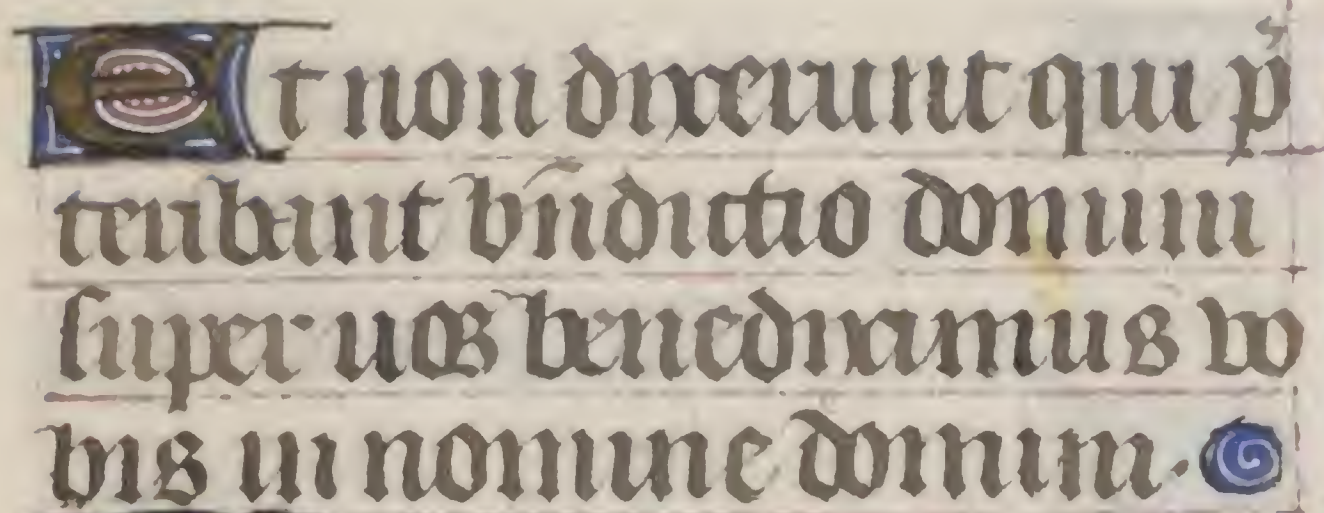 Et non dixerunt qui p̄
teribant bn̄dictio domini
super uos benediximus vo
bis in nomine domini.